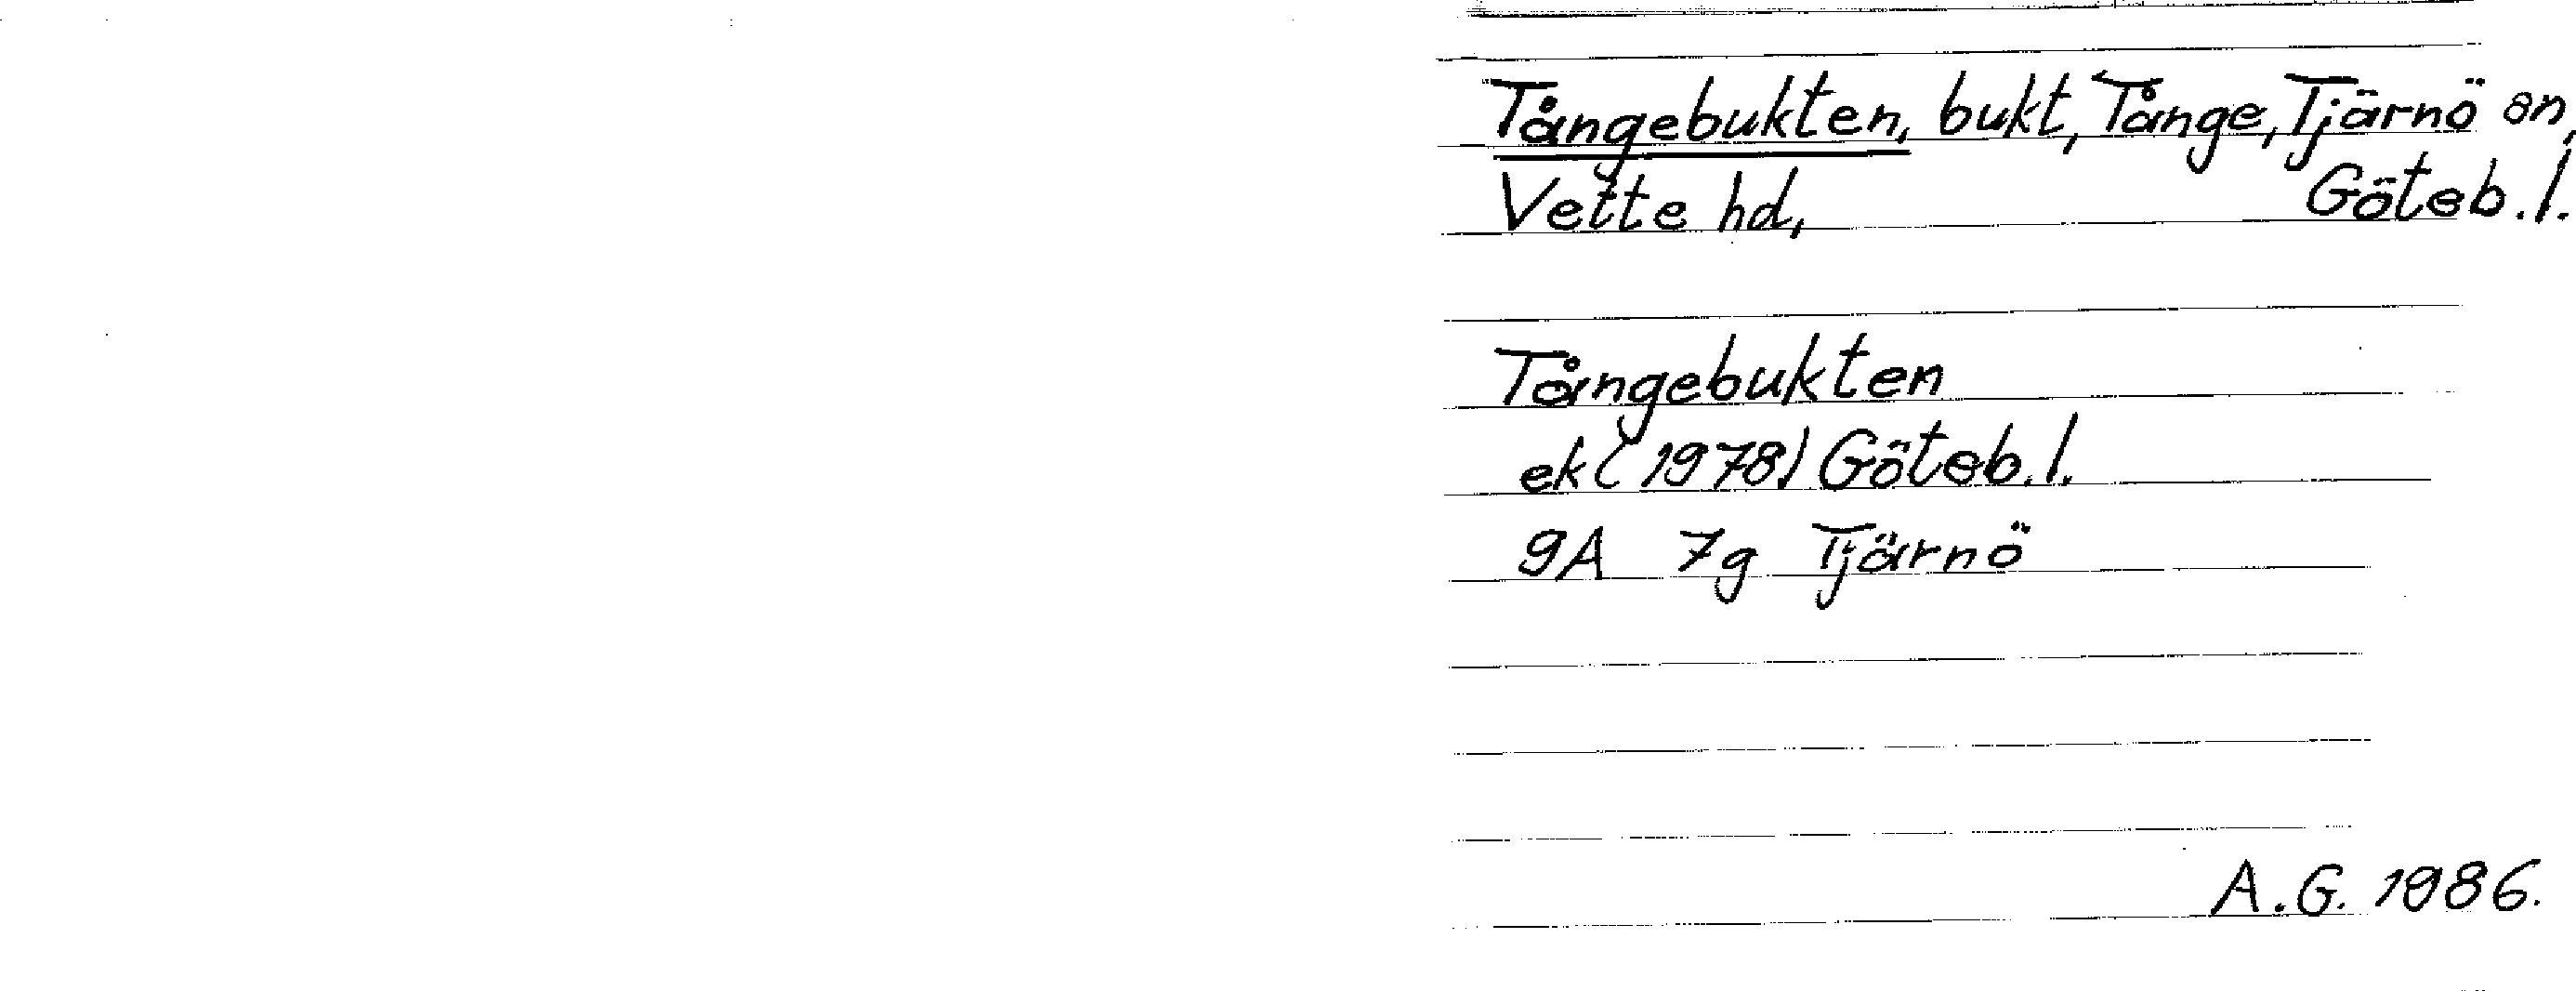 Tångebukten, bukt, Tånge, Tjärnö sn,
Vette hd, Göteb.l.
Tångebukten
ek (1978) Göteb.l.
9A 7g Tjärnö
A.G. 1986.